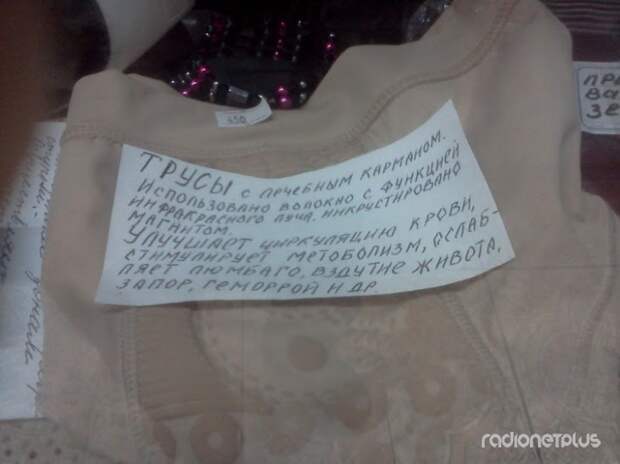 450
ПРИ
ВА
ЗЕ
ТРУСЫ С ЛЕЧЕБНЫМ КАРМАНОМ.
ИСПОЛЬЗОВАНО ВОЛОКНО С ФУНКЦИЕЙ
ИНФРАКРАСНОГО ЛУЧА, ИНКРУСТИРОВАНО
МАГНИТОМ.
УЛУЧШАЕТ ЦИРКУЛЯЦИЮ КРОВИ,
СТИМУЛИРУЕТ МЕТОБОЛИЗМ, ОСЛАБ-
ЛЯЕТ ЛЮМБАГО, ВЗДУТИЕ ЖИВОТА,
ЗАПОР, ГЕМОРРОЙ И ДР.
radionetplus